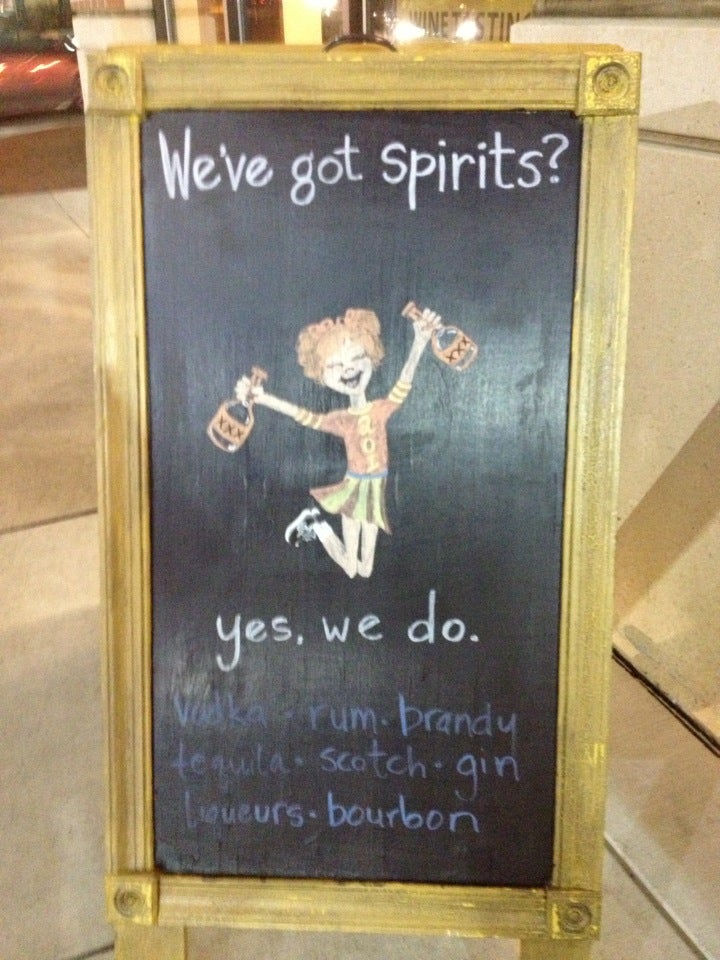 WINE TASTIN
We've got spirits?
XXX
XXX
yes, we do.
Vodka - rum · brandy
tequila · scotch · gin
liqueurs · bourbon